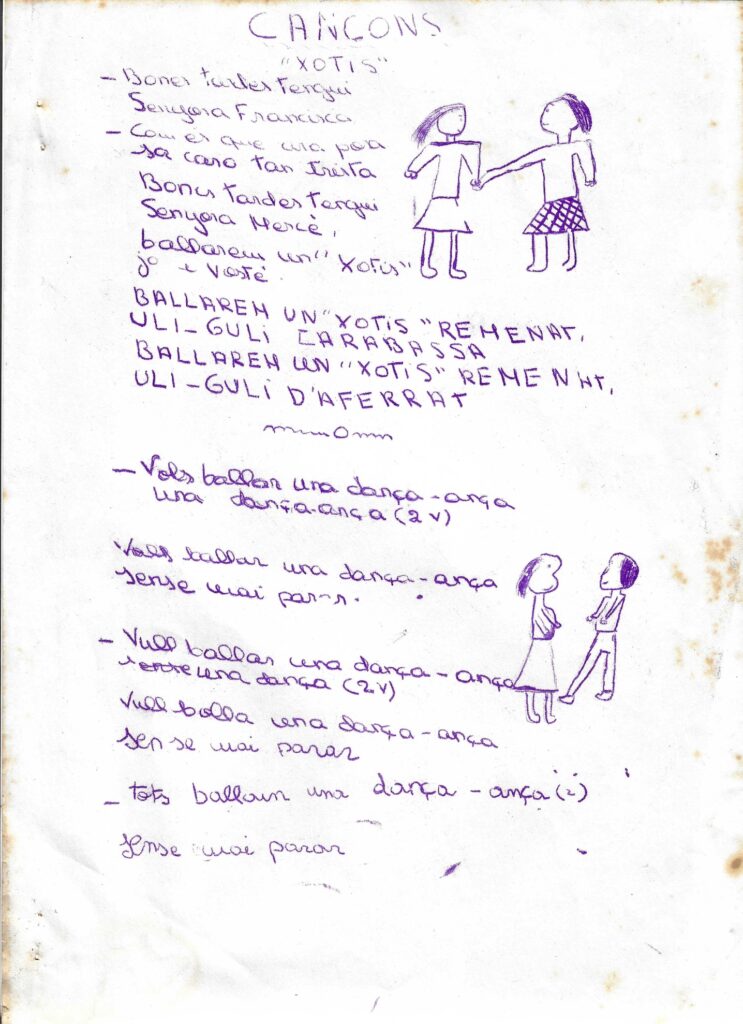 CANÇONS
"XOTIS"
- Bones tardes tengui
Senyora Francisca
- Com és que una posa
sa cara tan trista
Bones tardes tengui
Senyora Mercè,
ballarem un "Xotis"
jo i vostè.
BALLAREM UN "XOTIS" REMENAT,
ULI-GULI CARABASSA
BALLAREM UN "XOTIS" REMENAT,
ULI-GULI D'AFERRAT
- Vols ballar una dança-ança
una dança-ança (2 v)
Vols ballar una dança-ança
sense mai parar.
- Vull ballar una dança-ança
una dança (2 v)
Vull balla una dança-ança
sense mai parar
- tots ballam una dança-ança (2)
Sense mai parar